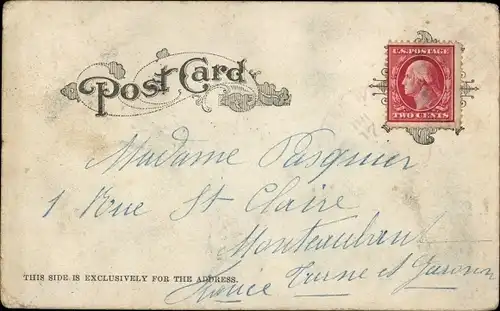 POST CARD
U.S. POSTAGE
TWO CENTS
Madame Pasquier
1 Rue St Claire
Montauban
THIS SIDE IS EXCLUSIVELY FOR THE ADDRESS.
France Turne et Garonne